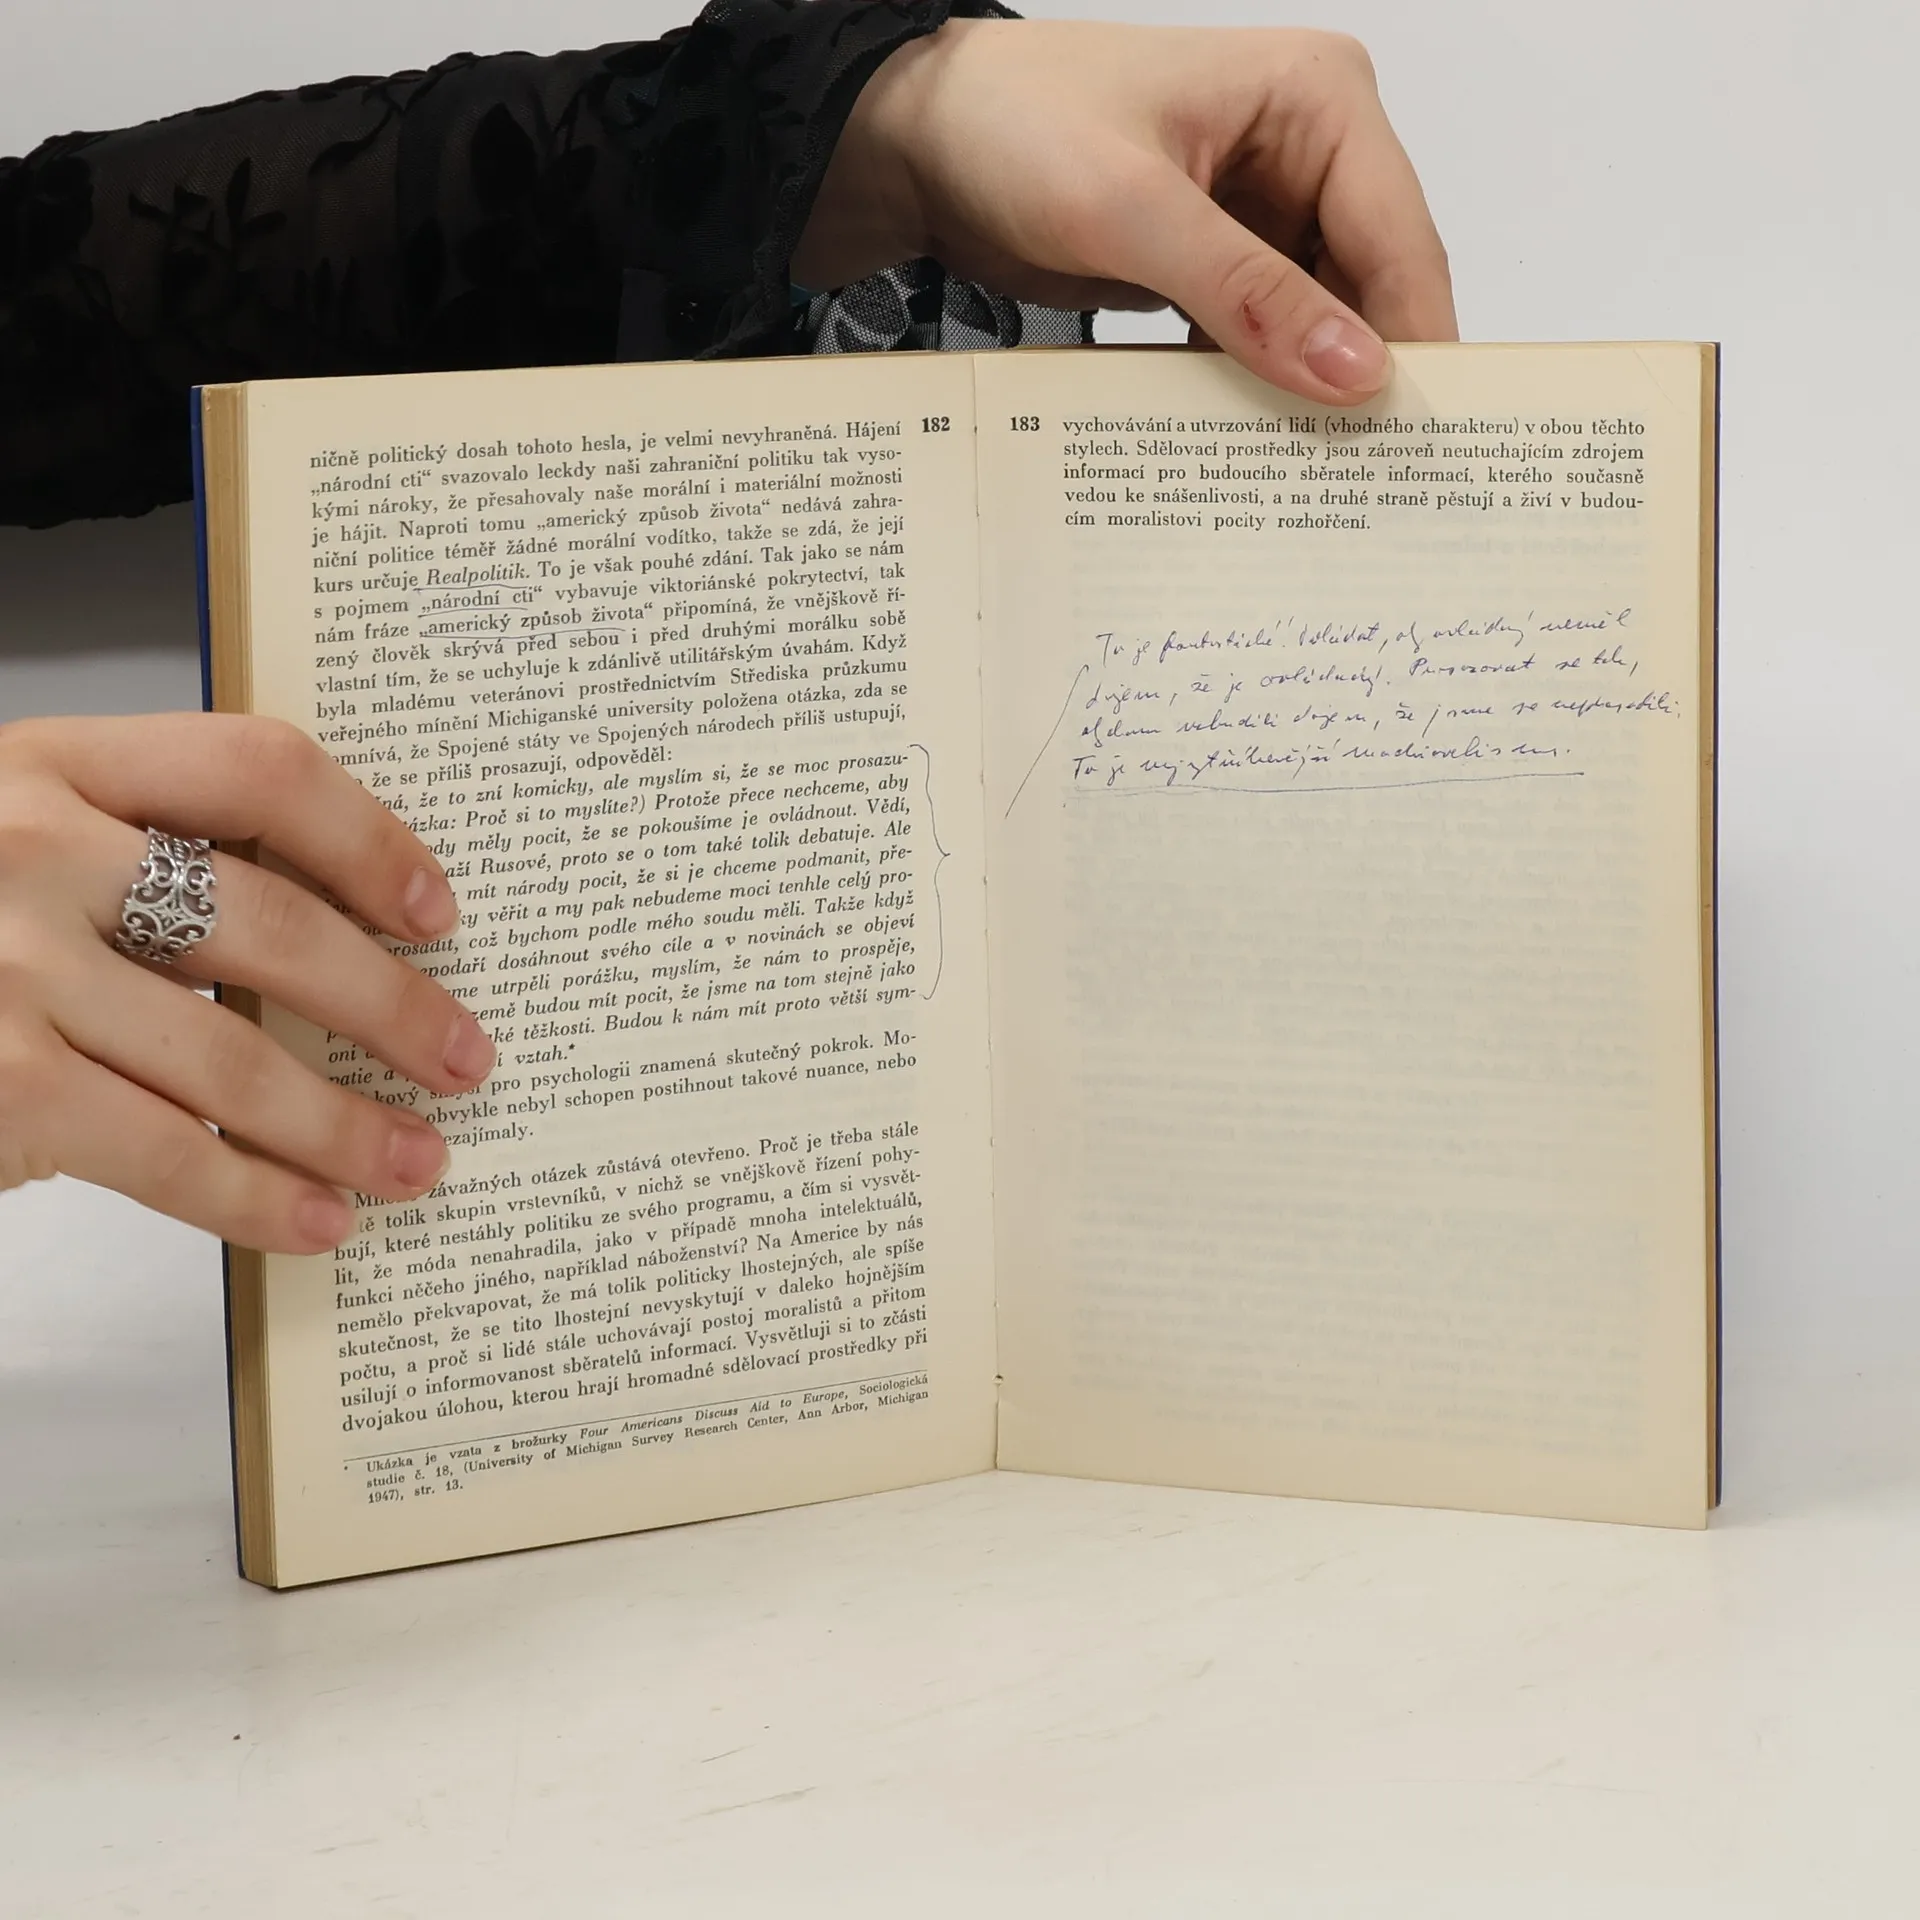 182
ničně politický dosah tohoto hesla, je velmi nevyhraněná. Hájení
„národní cti“ svazovalo leckdy naši zahraniční politiku tak vyso-
kými nároky, že přesahovaly naše morální i materiální možnosti
je hájit. Naproti tomu „americký způsob života“ nedává zahra-
niční politice téměř žádné morální vodítko, takže se zdá, že její
kurs určuje Realpolitik. To je však pouhé zdání. Tak jako se nám
s pojmem „národní cti“ vybavuje viktoriánské pokrytectví, tak
nám fráze „americký způsob života“ připomíná, že vnějškově ří-
zený člověk skrývá před sebou i před druhými morálku sobě
vlastní tím, že se uchyluje k zdánlivě utilitářským úvahám. Když
byla mladému veteránovi prostřednictvím Střediska průzkumu
veřejného mínění Michiganské university položena otázka, zda se
omnívá, že Spojené státy ve Spojených národech příliš ustupují,
že se příliš prosazují, odpověděl:
ná, že to zní komicky, ale myslím si, že se moc prosazu-
ázka: Proč si to myslíte?) Protože přece nechceme, aby
ody měly pocit, že se pokoušíme je ovládnout. Vědí,
aží Rusové, proto se o tom také tolik debatuje. Ale
mít národy pocit, že si je chceme podmanit, pře-
ky věřit a my pak nebudeme moci tenhle celý pro-
rosadit, což bychom podle mého soudu měli. Takže když
epodaří dosáhnout svého cíle a v novinách se objeví
me utrpěli porážku, myslím, že nám to prospěje,
země budou mít pocit, že jsme na tom stejně jako
oni aké těžkosti. Budou k nám mít proto větší sym-
patie a í vztah.*
kový smysl pro psychologii znamená skutečný pokrok. Mo-
obvykle nebyl schopen postihnout takové nuance, nebo
ezajímaly.
závažných otázek zůstává otevřeno. Proč je třeba stále
tě tolik skupin vrstevníků, v nichž se vnějškově řízení pohy-
bují, které nestáhly politiku ze svého programu, a čím si vysvět-
lit, že móda nenahradila, jako v případě mnoha intelektuálů,
funkci něčeho jiného, například náboženství? Na Americe by nás
nemělo překvapovat, že má tolik politicky lhostejných, ale spíše
skutečnost, že se tito lhostejní nevyskytují v daleko hojnějším
počtu, a proč si lidé stále uchovávají postoj moralistů a přitom
usilují o informovanost sběratelů informací. Vysvětluji si to zčásti
dvojakou úlohou, kterou hrají hromadné sdělovací prostředky při
* Ukázka je vzata z brožurky Four Americans Discuss Aid to Europe, Sociologická
studie č. 18, (University of Michigan Survey Research Center, Ann Arbor, Michigan
1947), str. 13.
183
vychovávání a utvrzování lidí (vhodného charakteru) v obou těchto
stylech. Sdělovací prostředky jsou zároveň neutuchajícím zdrojem
informací pro budoucího sběratele informací, kterého současně
vedou ke snášenlivosti, a na druhé straně pěstují a živí v budou-
cím moralistovi pocity rozhořčení.
To je fantastické! Ovládat, aby ovládaný neměl
dojem, že je ovládaný. Prosazovat se tak,
abychom vzbudili dojem, že jsme se neprosadili.
To je nejvytříbenější machiavelismus.